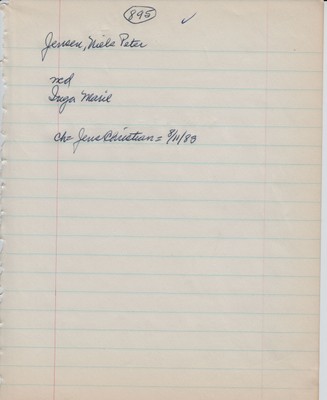 895 ✓
Jensen, Niels Peter
md
Inga Marie
ch= Jens Christian = 8/11/85